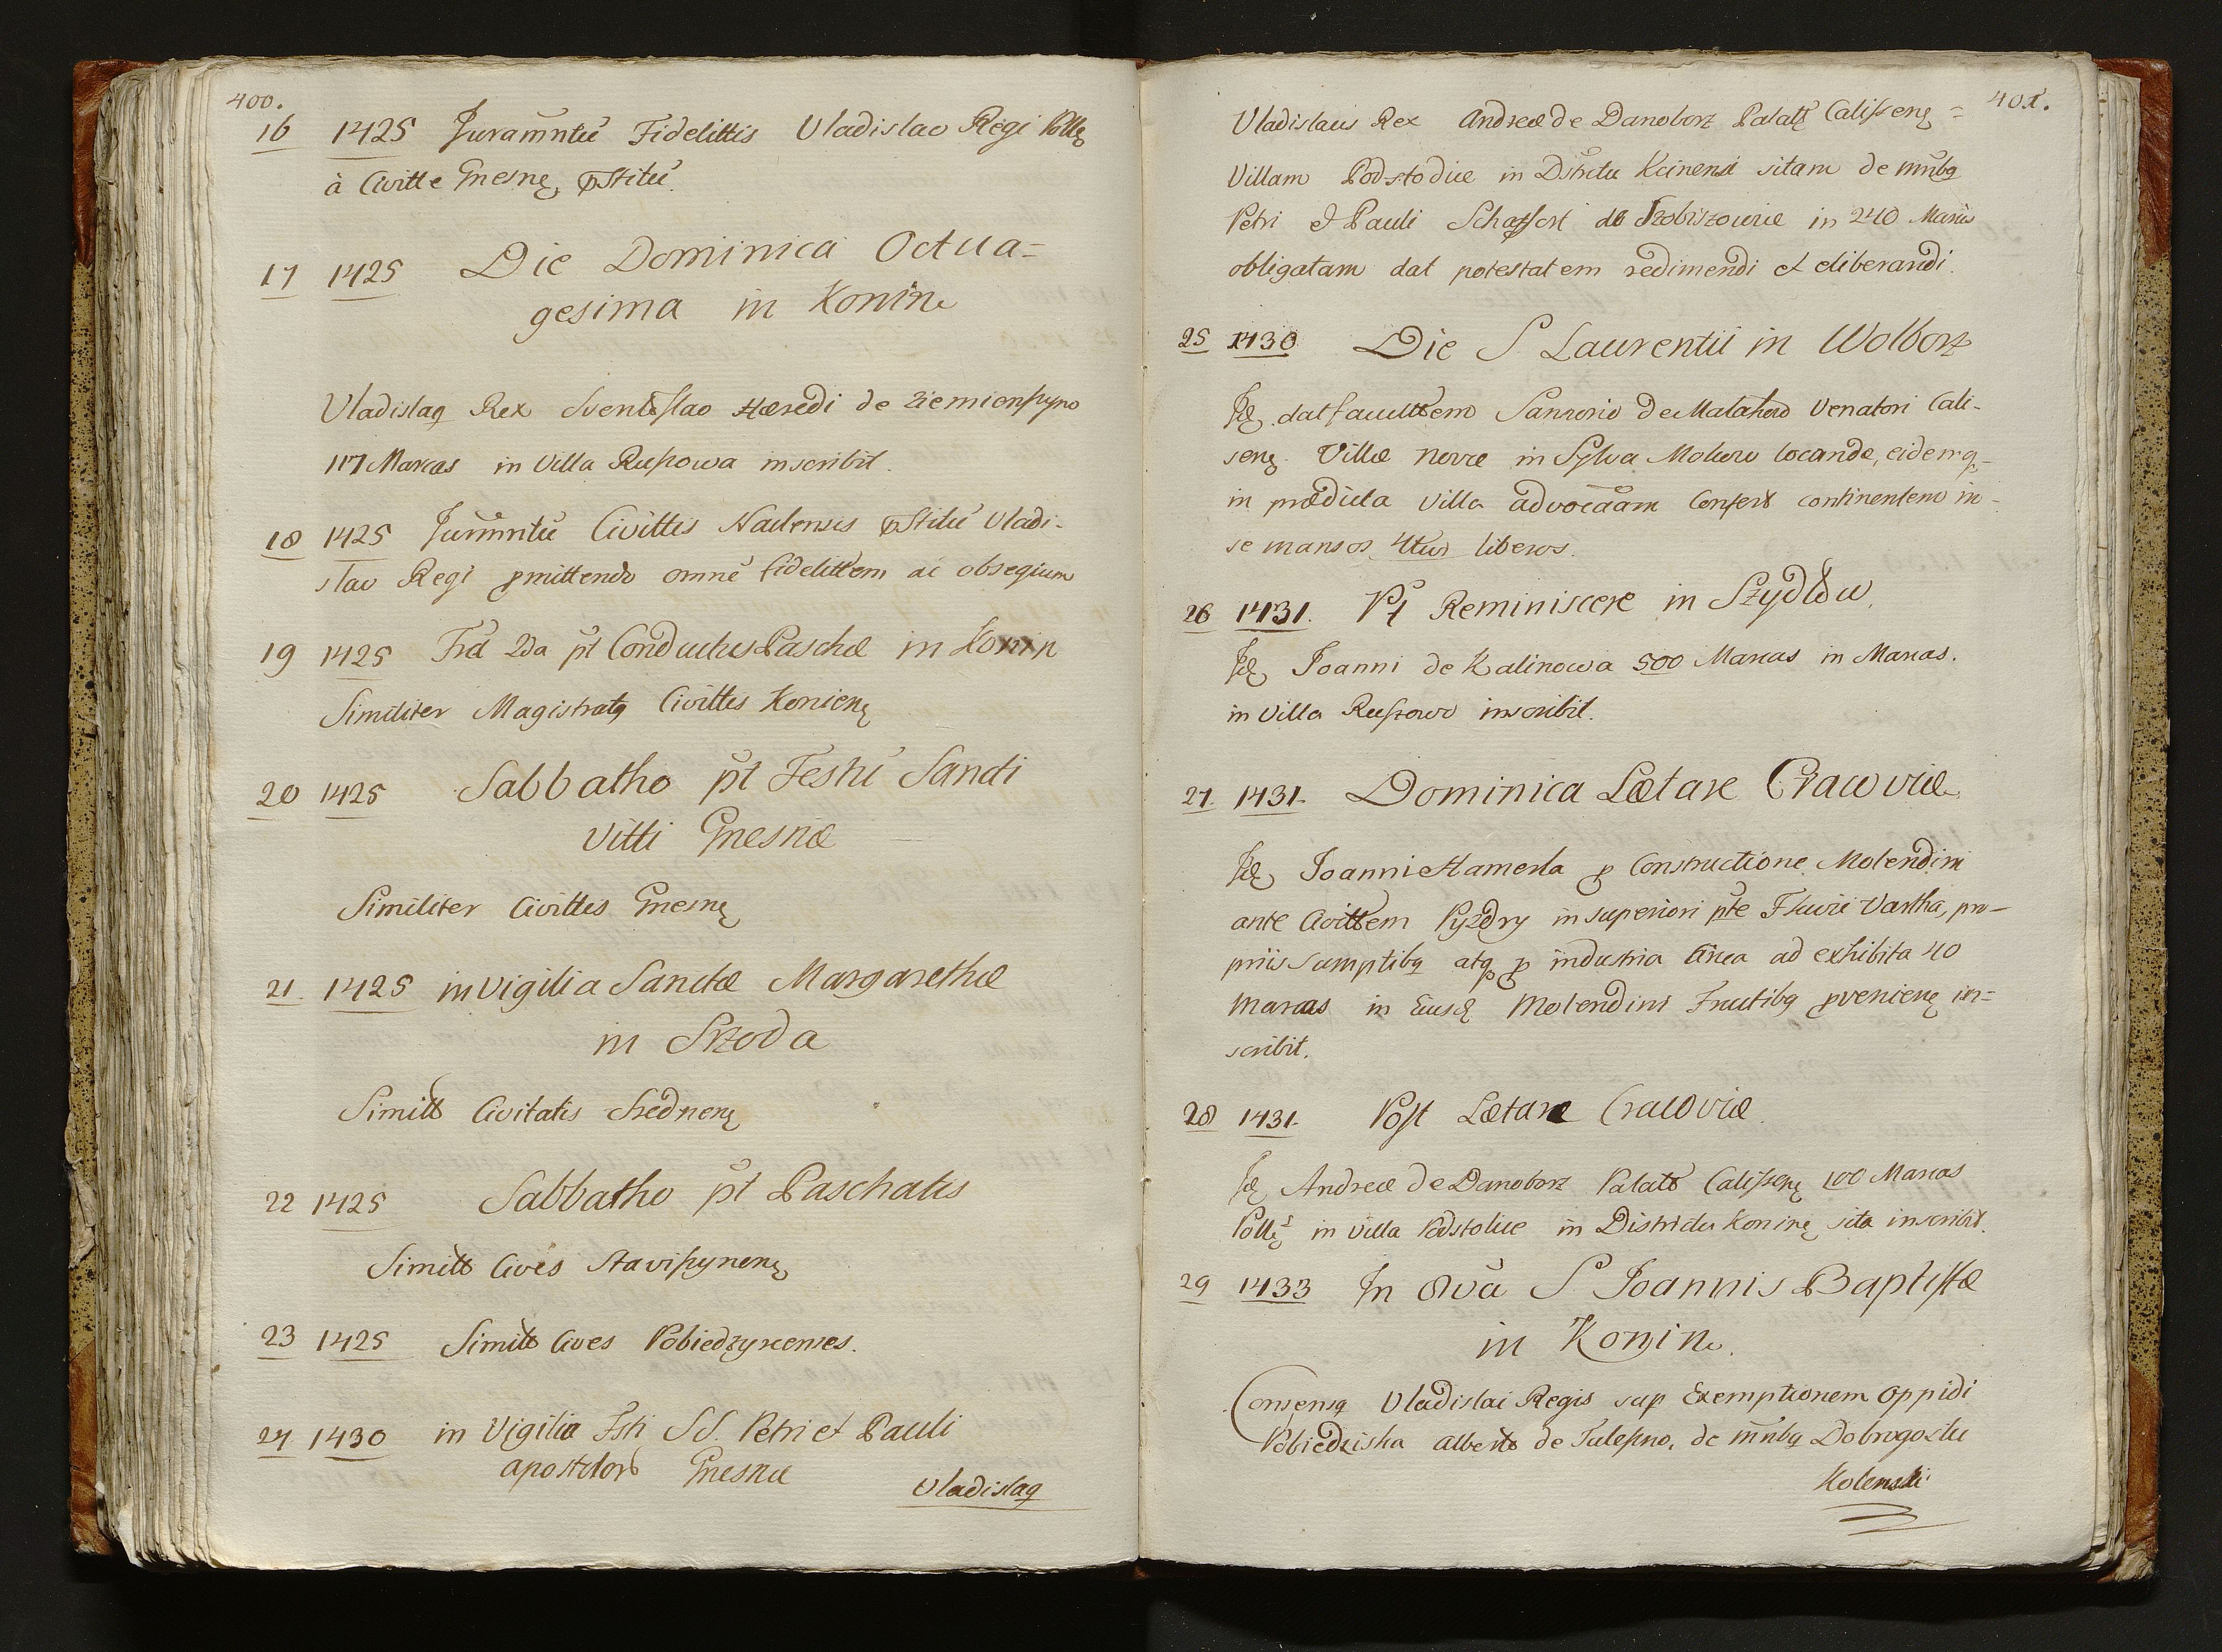 400.
16 1425 Juramntū Fidelittis Vladislao Regi Pollę
à Civitte Gnesnę pstitū.
17 1425 Die Dominica Octua=
gesima in Konin
Vladislaq Rex Sventislao Hæredi de
117 Marcas in Villa Ruszowa inscribit.
18 1425 Jurmntū Civittis Naklensis pstitū Vladi-
slao Regi pmittendo omnē fidelittem ac obsegium
19 1425 Fra 2da pt Conductus Paschæ in Konin
Similiter Magistratq Civittis Konienę
20 1425 Sabbatho pt Festū Sancti
Vitti Gnesnæ
Similiter Civittes Gnesnę
21. 1425 in vigilia Sanctæ Margarethæ
in Srzoda
Similt Civitatis Srednenę
22 1425 Sabbatho pt Paschatis
Similt Cives Staviszynenę
23 1425 Similt Cives Pobiedzyscenses.
24 1430 in Vigilia Fsti SS. Petri et Pauli
apostolor Gnesnæ
Vladislaq
401.
Vladislaus Rex Andreæ de Danoborz Palatę Caliszenę =
Villam Podstolice in Dstrictu Kcinensi sitam de mnbq
Petri et Pauli de in 240 Marcis
obligatam dat potestatem redimendi et eliberandi.
25 1430 Die S Laurentii in Wolborz
Idę dat facultttem de Venatori Cali-
senę. Villæ novæ in Sylva locandæ, eidemq=
in prædicta Villa advocaam Confert continentem in-
se mansos 4tuor liberos.
26 1431. Pt Reminiscere in Szydłow
Idę Joanni de Kalinowa 500 Marcas in Marcas.
in Villa Ruszowo inscribit.
27. 1431. Dominica Lætare Cracoviæ
Idę Joanni Hamerla p Constructione Molendini
ante Civittem Pyzdry in superiori pte Fluvii Vartha, pro-
priis sumptibq atq p industria Circa ad exhibita 40
Marcas in Eiusdę Molendini Fructibq pvenienę in=
scribit.
28 1431. Post Lætare Cracoviæ.
Idę Andreæ de Danoborz Palato Caliszenę 100 Marcas
Pollę in Villa Podstolice in Districtu Koninę sita inscribit.
29 1433 In 8va S Joannis Baptistæ
in Konin.
Consensq Vladislai Regis sup Exemptionem Oppidi
Pobiedziska Alberto de Tuleszno, de mnbq Dobrogostii
Kolenski